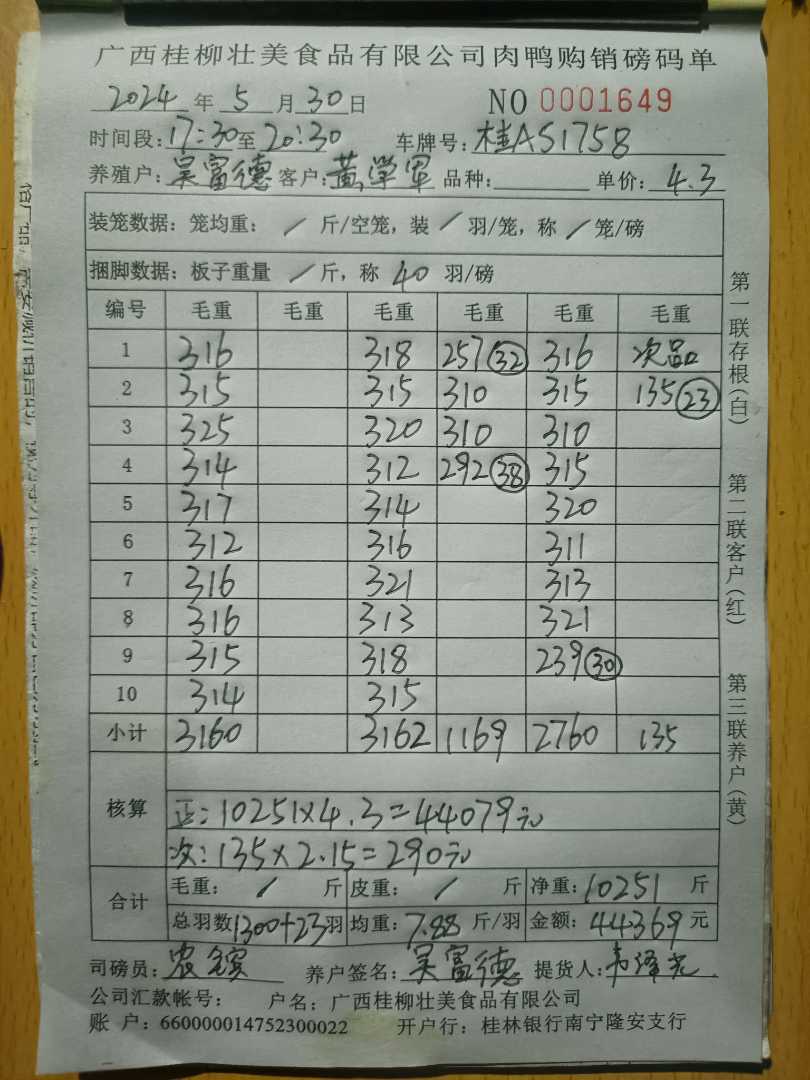 广西桂柳壮美食品有限公司肉鸭购销磅码单
2024年5月30日 NO 0001649
时间段:17:30至20:30 车牌号:桂AS1758
养殖户:吴富德 客户:黄学军 品种: 单价:4.3
装笼数据:笼均重: / 斤/空笼,装 / 羽/笼,称 / 笼/磅
捆脚数据:板子重量 / 斤,称 40 羽/磅
编号 毛重 毛重 毛重 毛重 毛重 毛重
1 316 318 257(32) 316 次品
2 315 315 310 315 135(23)
3 325 320 310 310
4 314 312 292(38) 315
5 317 314 320
6 312 316 311
7 316 321 313
8 316 313 321
9 315 318 239(30)
10 314 315
小计 3160 3162 1169 2760 135
核算
正:10251×4.3=44079元
次:135×2.15=290元
合计
毛重: / 斤 皮重: / 斤 净重:10251 斤
总羽数1300+23羽 均重:7.88 斤/羽 金额:44369元
司磅员:农 养户签名:吴富德 提货人:韦泽光
公司汇款帐号: 户名:广西桂柳壮美食品有限公司
账 户:660000014752300022 开户行:桂林银行南宁隆安支行
第一联存根(白)
第二联客户(红)
第三联养户(黄)